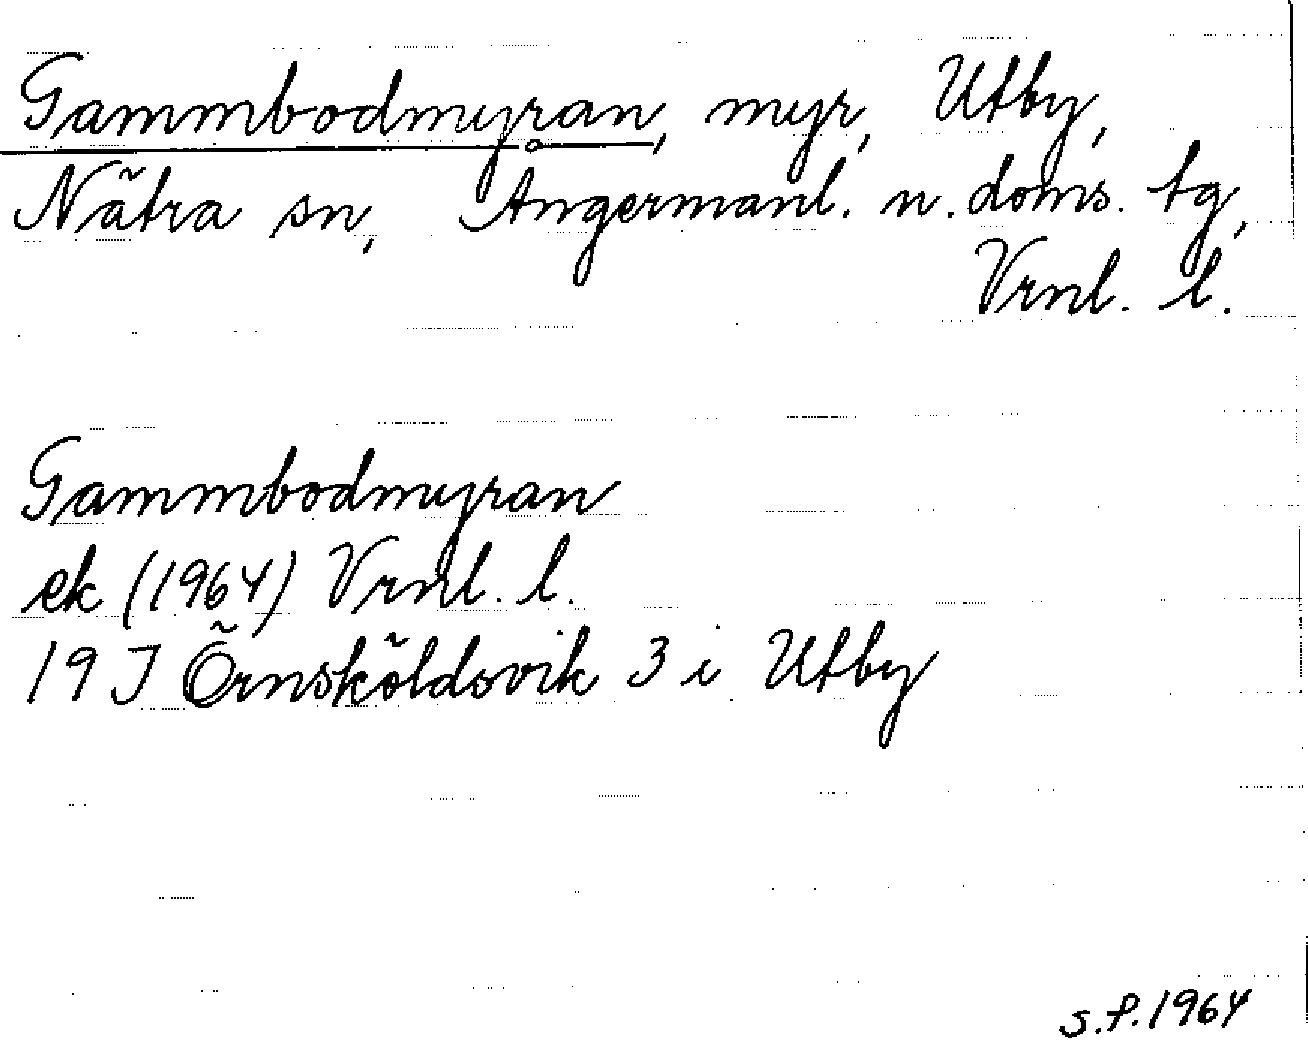 Gammbodmyran, myr, Utby,
Nätra sn, Ångermanl. n. doms. tg,
Vrnl. l.
Gammbodmyran
ek (1964) Vrnl. l.
19 J Örnsköldsvik 3 i Utby
S.P. 1964